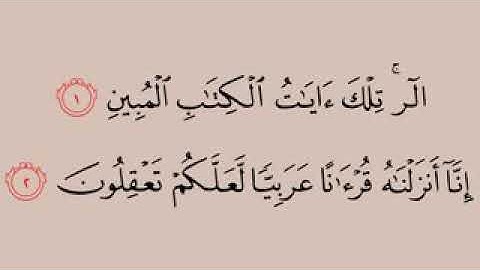 الٓرۚ تِلۡكَ ءَايَٰتُ ٱلۡكِتَٰبِ ٱلۡمُبِينِ ١
إِنَّآ أَنزَلۡنَٰهُ قُرۡءَٰنًا عَرَبِيّٗا لَّعَلَّكُمۡ تَعۡقِلُونَ ٢